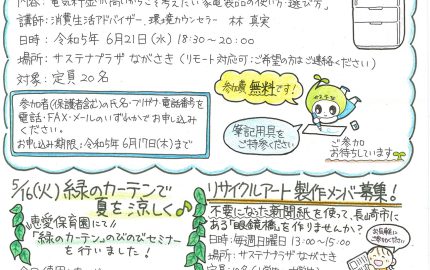 内容：電気料金が高いからこそ考えたい家電製品の使い方・選び方」
講師：消費生活アドバイザー、環境カウンセラー 林 真実
日時：令和5年 6月21日(水) 18:30~20:00
場所：サステナプラザ ながさき (リモート対応可:ご希望の方はご連絡ください)
対象：定員20名
参加費無料です!
参加者(保護者含む)の氏名・フリガナ・電話番号を
電話・FAX・メールのいずれかでお申し込み
ください。
お申し込み期限：令和5年 6月17日(木)まで
筆記用具を
ご持参ください
ご参加
お待ちしています
5/16(火) 緑のカーテンで
夏を涼しく♪
恵愛保育園にて!!
『緑のカーテン』のびのびセミナー
を行いました!
リサイクルアート 製作メンバー募集!
不要になった新聞紙を使って、長崎市に
ある『眼鏡橋』を作りませんか?
日時：毎週日曜日 13:00~15:00
場所：サステナプラザながさき
お気軽に